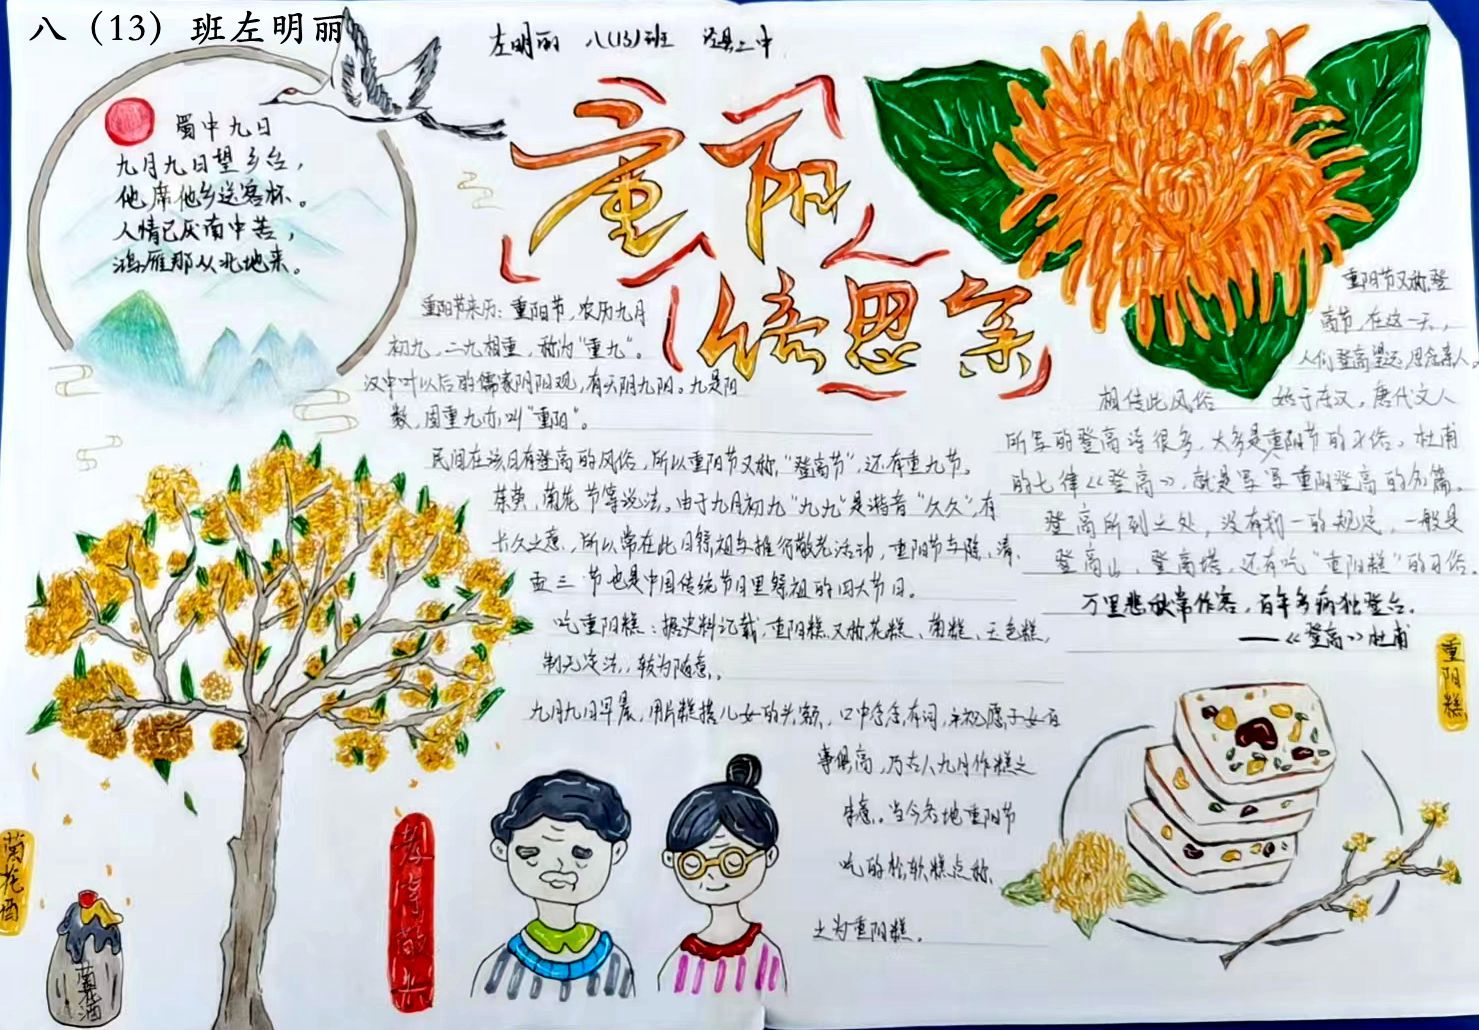 八（13）班左明丽
左明丽 八(13)班 泾县二中
重阳
倍思亲
蜀中九日
九月九日望乡台，
他席他乡送客杯。
人情已厌南中苦，
鸿雁那从北地来。
重阳节来历：重阳节，农历九月
初九，二九相重，称为"重九"。
汉中叶以后的儒家阴阳观，有六阴九阳。九是阳
数，固重九亦叫"重阳"。
民间在该日有登高的风俗，所以重阳节又称"登高节"，还有重九节。
茱萸、菊花节等说法。由于九月初九"九九"是谐音"久久"，有
长久之意，所以常在此日祭祖与推行敬老活动，重阳节与除、清、
盂三节也是中国传统节日里祭祖的四大节日。
吃重阳糕：据史料记载，重阳糕又称花糕、菊糕、五色糕，
制无定法，较为随意。
九月九日早晨，用片糕搭儿女的头额，口中念念有词，祝愿子女百
事俱高，乃古人九月作糕之
本意。当今各地重阳节
吃的松软糕点称
之为重阳糕。
重阳节又称登
高节，在这一天，
人们登高望远，思念亲人。
相传此风俗 始于东汉，唐代文人
所写的登高诗很多，大多是重阳节的习俗。杜甫
的七律《登高》，就是写写重阳登高的名篇。
登高所到之处，没有划一的规定，一般是
登高山、登高塔，还有吃"重阳糕"的习俗。
万里悲秋常作客，百年多病独登台。
——《登高》杜甫
重阳糕
菊花酒
菊花酒